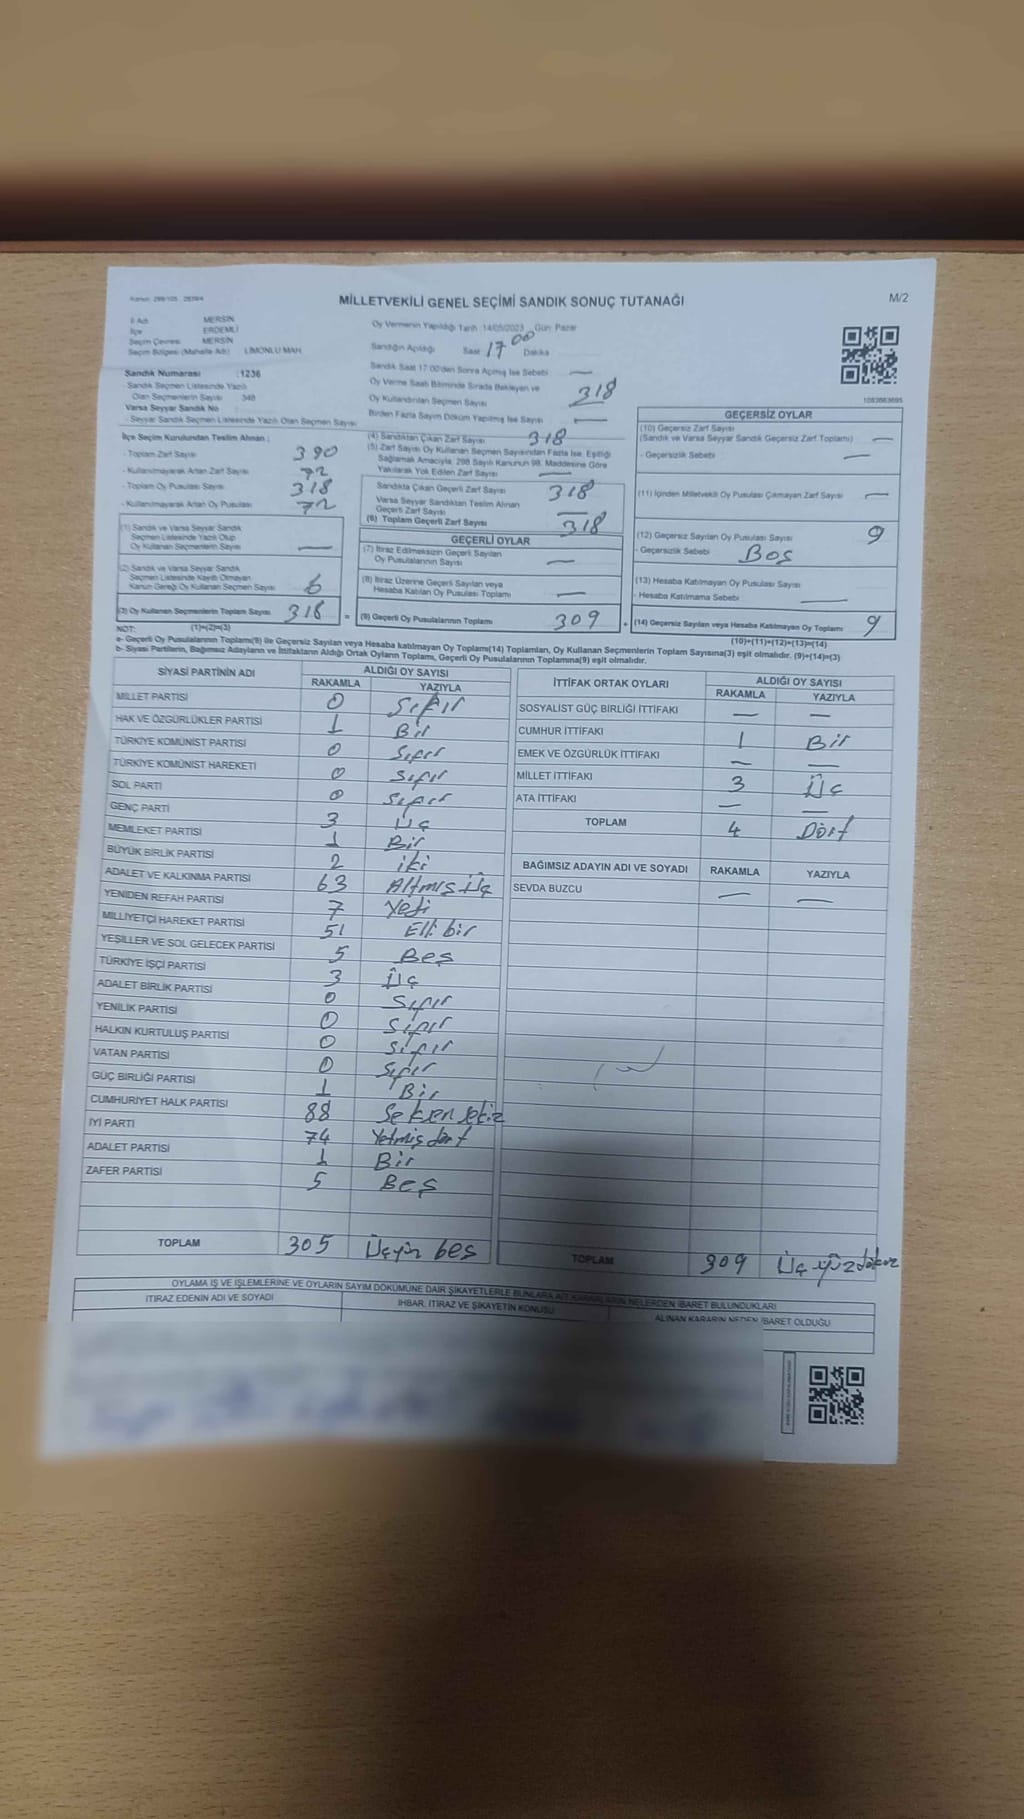 Kanun: 298/105 2839/4
MİLLETVEKİLİ GENEL SEÇİMİ SANDIK SONUÇ TUTANAĞI
M/2
İl Adı MERSİN
İlçe ERDEMLİ
Seçim Çevresi MERSİN
Seçim Bölgesi (Mahalle Adı) LİMONLU MAH.
Sandık Numarası :1236
Sandık Seçmen Listesinde Yazılı
Olan Seçmenlerin Sayısı 348
Varsa Seyyar Sandık No
Seyyar Sandık Seçmen Listesinde Yazılı Olan Seçmen Sayısı
Oy Vermenin Yapıldığı Tarih :14/05/2023 Gün: Pazar
Sandığın Açıldığı Saat 17 00 Dakika
Sandık Saat 17:00'den Sonra Açmış İse Sebebi —
Oy Verme Saati Bitiminde Sırada Bekleyen ve
Oy Kullandırılan Seçmen Sayısı 318
Birden Fazla Sayım Döküm Yapılmış İse Sayısı —
1083663695
İlçe Seçim Kurulundan Teslim Alınan ;
- Toplam Zarf Sayısı 390
- Kullanılmayarak Artan Zarf Sayısı 72
- Toplam Oy Pusulası Sayısı 318
- Kullanılmayarak Artan Oy Pusulası 72
(1) Sandık ve Varsa Seyyar Sandık
Seçmen Listesinde Yazılı Olup
Oy Kullanan Seçmenlerin Sayısı —
(2) Sandık ve Varsa Seyyar Sandık
Seçmen Listesinde Kayıtlı Olmayan
Kanun Gereği Oy Kullanan Seçmen Sayısı 6
(3) Oy Kullanan Seçmenlerin Toplam Sayısı 318 =
(4) Sandıktan Çıkan Zarf Sayısı 318
(5) Zarf Sayısı Oy Kullanan Seçmen Sayısından Fazla İse, Eşitliği
Sağlamak Amacıyla, 298 Sayılı Kanunun 98. Maddesine Göre
Yakılarak Yok Edilen Zarf Sayısı —
Sandıkta Çıkan Geçerli Zarf Sayısı 318
Varsa Seyyar Sandıktan Teslim Alınan
Geçerli Zarf Sayısı —
(6) Toplam Geçerli Zarf Sayısı 318
GEÇERLİ OYLAR
(7) İtiraz Edilmeksizin Geçerli Sayılan
Oy Pusulalarının Sayısı —
(8) İtiraz Üzerine Geçerli Sayılan veya
Hesaba Katılan Oy Pusulası Toplamı —
(9) Geçerli Oy Pusulalarının Toplamı 309 +
GEÇERSİZ OYLAR
(10) Geçersiz Zarf Sayısı
(Sandık ve Varsa Seyyar Sandık Geçersiz Zarf Toplamı) —
- Geçersizlik Sebebi —
(11) İçinden Milletvekili Oy Pusulası Çıkmayan Zarf Sayısı —
(12) Geçersiz Sayılan Oy Pusulası Sayısı 9
- Geçersizlik Sebebi Boş
(13) Hesaba Katılmayan Oy Pusulası Sayısı
- Hesaba Katılmama Sebebi —
(14) Geçersiz Sayılan veya Hesaba Katılmayan Oy Toplamı 9
NOT: (1)+(2)=(3) (10)+(11)+(12)+(13)=(14)
a- Geçerli Oy Pusulalarının Toplamı(9) ile Geçersiz Sayılan veya Hesaba katılmayan Oy Toplamı(14) Toplamları, Oy Kullanan Seçmenlerin Toplam Sayısına(3) eşit olmalıdır. (9)+(14)=(3)
b- Siyasi Partilerin, Bağımsız Adayların ve İttifakların Aldığı Ortak Oyların Toplamı, Geçerli Oy Pusulalarının Toplamına(9) eşit olmalıdır.
SİYASİ PARTİNİN ADI ALDIĞI OY SAYISI
RAKAMLA YAZIYLA
MİLLET PARTİSİ 0 Sıfır
HAK VE ÖZGÜRLÜKLER PARTİSİ 1 Bir
TÜRKİYE KOMÜNİST PARTİSİ 0 Sıfır
TÜRKİYE KOMÜNİST HAREKETİ 0 Sıfır
SOL PARTİ 0 Sıfır
GENÇ PARTİ 3 Üç
MEMLEKET PARTİSİ 1 Bir
BÜYÜK BİRLİK PARTİSİ 2 iki
ADALET VE KALKINMA PARTİSİ 63 Altmış üç
YENİDEN REFAH PARTİSİ 7 Yedi
MİLLİYETÇİ HAREKET PARTİSİ 51 Elli bir
YEŞİLLER VE SOL GELECEK PARTİSİ 5 Beş
TÜRKİYE İŞÇİ PARTİSİ 3 Üç
ADALET BİRLİK PARTİSİ 0 Sıfır
YENİLİK PARTİSİ 0 Sıfır
HALKIN KURTULUŞ PARTİSİ 0 Sıfır
VATAN PARTİSİ 0 Sıfır
GÜÇ BİRLİĞİ PARTİSİ 1 Bir
CUMHURİYET HALK PARTİSİ 88 Seksen sekiz
İYİ PARTİ 74 Yetmiş dört
ADALET PARTİSİ 1 Bir
ZAFER PARTİSİ 5 Beş
TOPLAM 305 Üçyüz beş
İTTİFAK ORTAK OYLARI ALDIĞI OY SAYISI
RAKAMLA YAZIYLA
SOSYALİST GÜÇ BİRLİĞİ İTTİFAKI — —
CUMHUR İTTİFAKI 1 Bir
EMEK VE ÖZGÜRLÜK İTTİFAKI — —
MİLLET İTTİFAKI 3 Üç
ATA İTTİFAKI — —
TOPLAM 4 Dört
BAĞIMSIZ ADAYIN ADI VE SOYADI RAKAMLA YAZIYLA
SEVDA BUZCU — —
TOPLAM 309 Üç yüz dokuz
OYLAMA İŞ VE İŞLEMLERİNE VE OYLARIN SAYIM DÖKÜMÜNE DAİR ŞİKAYETLERLE BUNLARA AİT KARARLARIN NELERDEN İBARET BULUNDUKLARI
İTİRAZ EDENİN ADI VE SOYADI İHBAR, İTİRAZ VE ŞİKAYETİN KONUSU ALINAN KARARIN NEDEN İBARET OLDUĞU